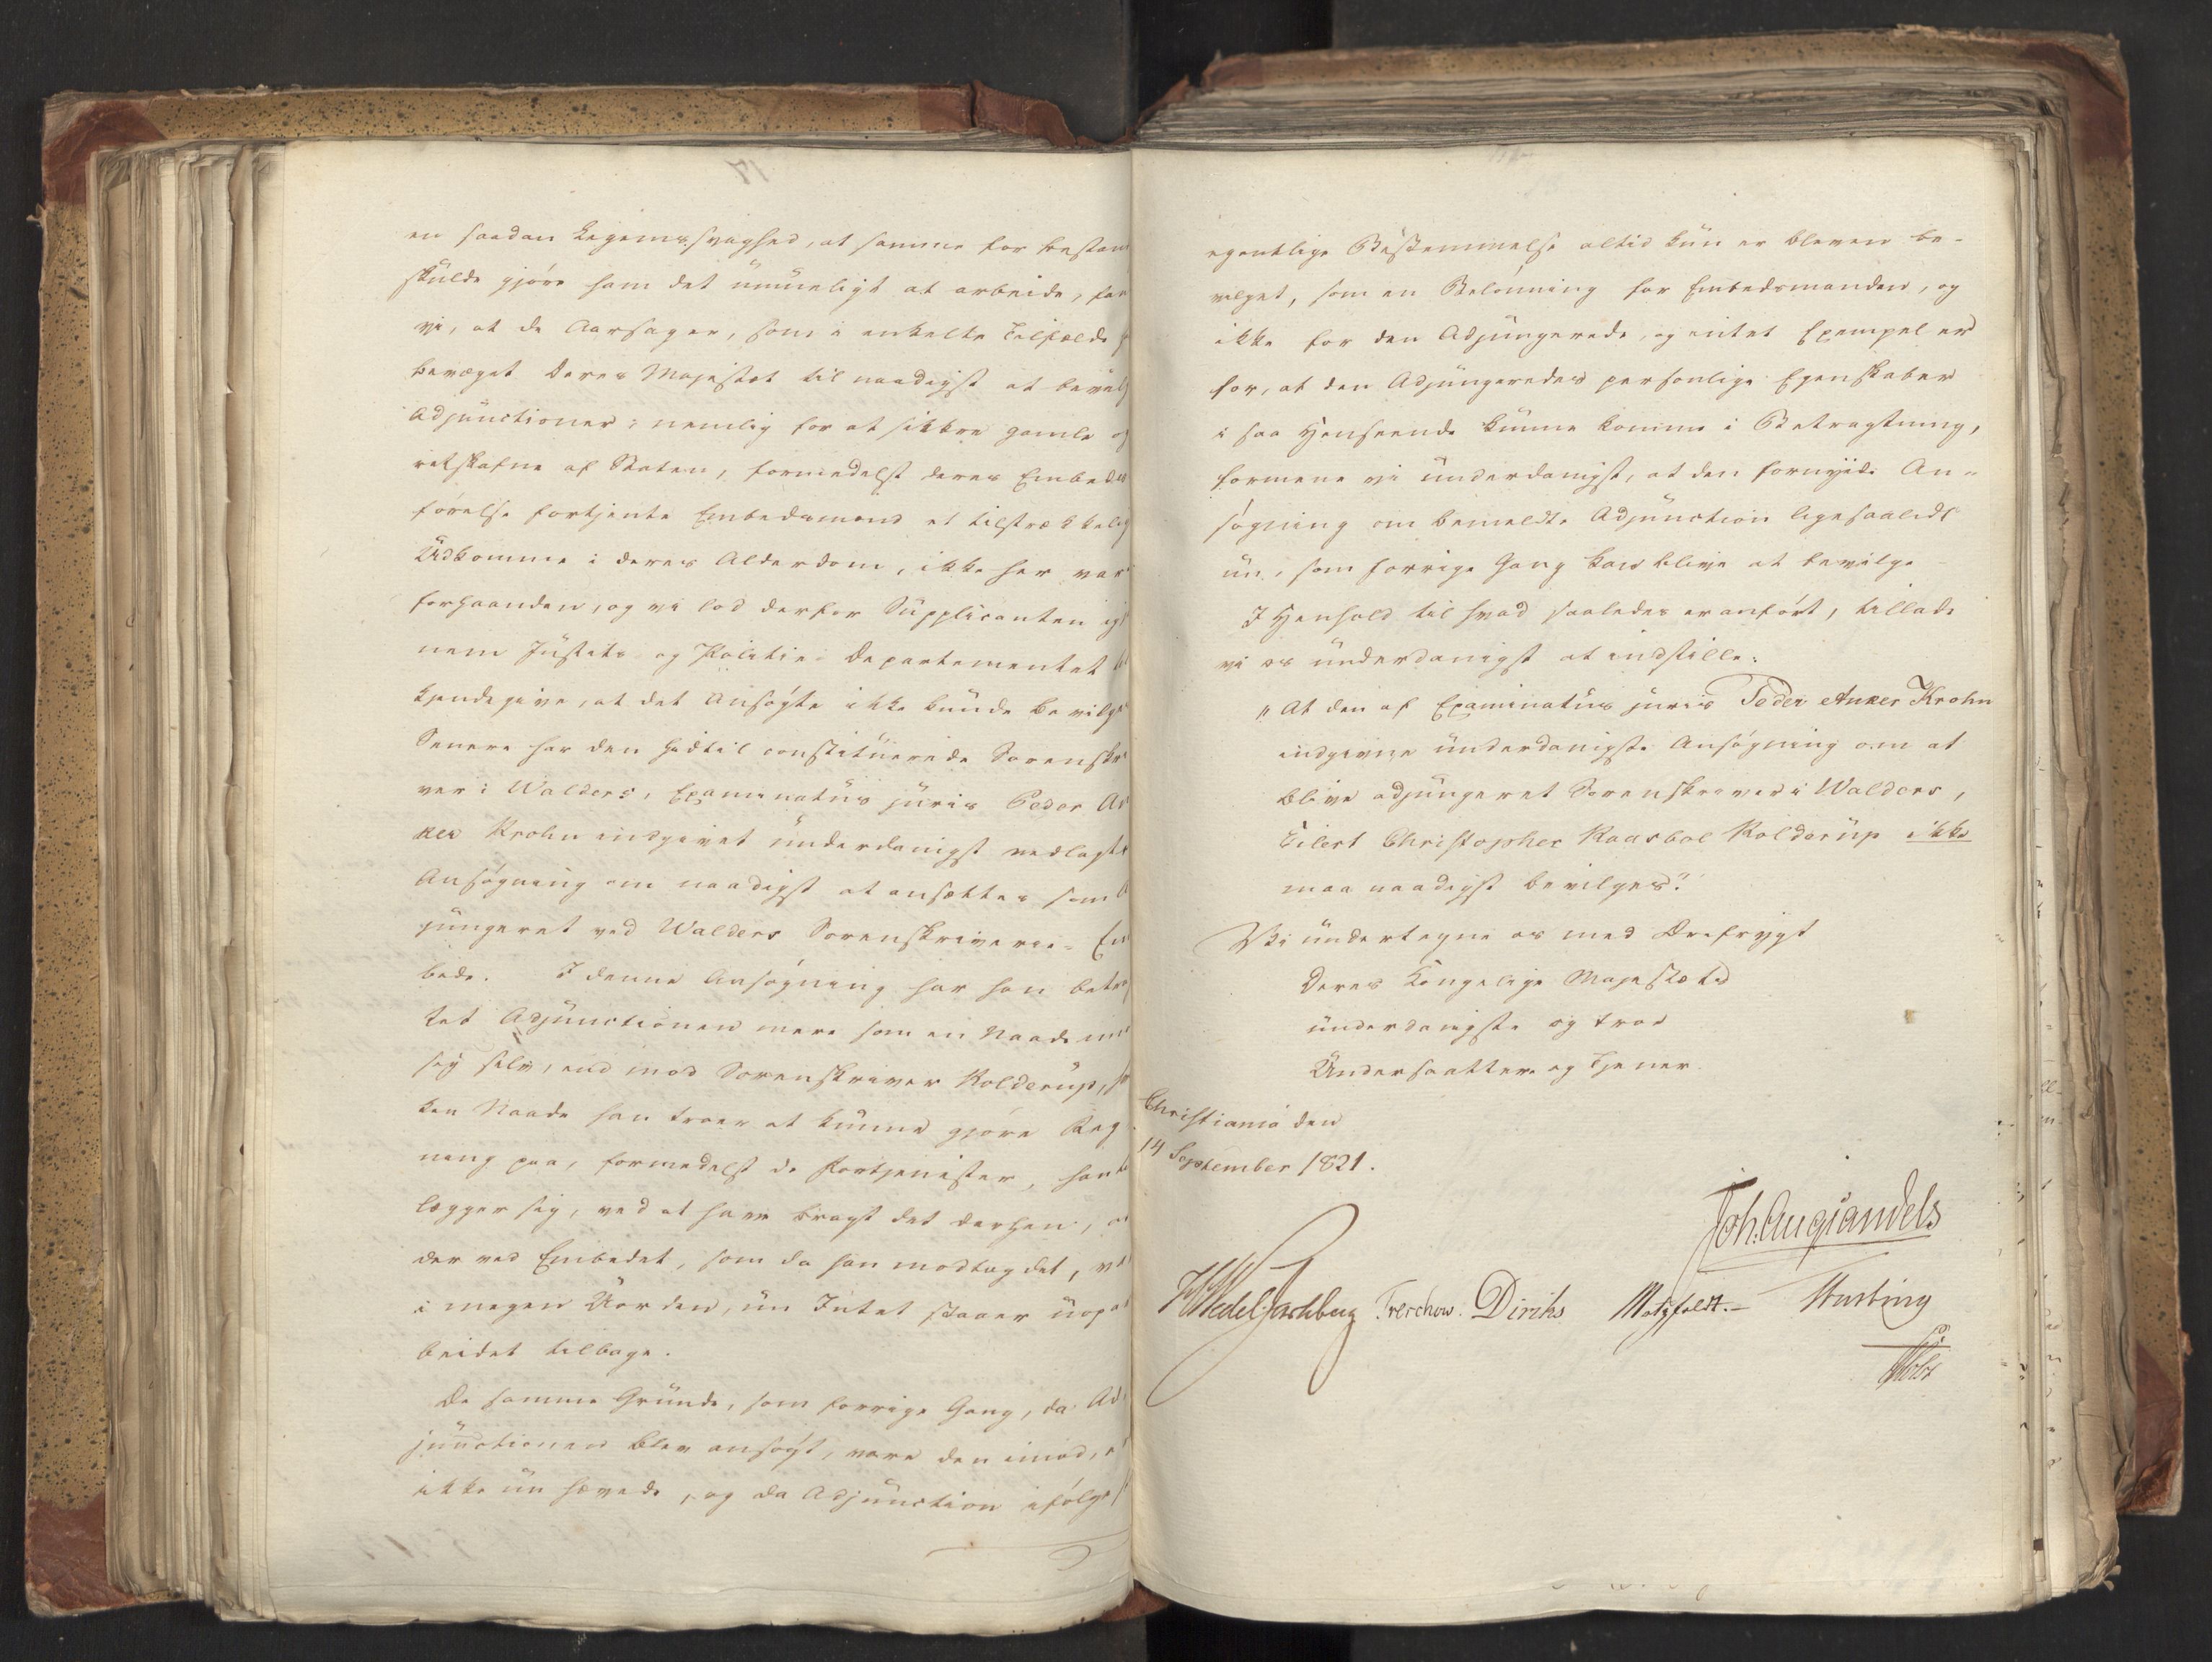 en saadan Legemssvaghed, at samme for bestan
skulde gjøre ham det umueligt at arbeide, fan
vi, at de Aarsager, som i enkelte Tilfælde
bevæget Deres Majestæt til naadigst at bevil
Adjunctioner: nemlig for at sikkre gamle og
retskafne af Staten, formedelst deres Embeds
førelse fortjente Embedsmænd et tilstrækkelig
Udkomme i deres Alderdom, ikke her var
forhaanden, og vi lod derfor Supplicanten igj
nem Justits- og Politie-Departementet til
kjendegive, at det Ansøgte ikke kunde bevilge
Senere har den hidtil constituerede Sorenskri
ver i Walders, Examinatus juris Peder An
ker Krohn indgivet underdanigst vedlagte
Ansøgning om naadigst at ansættes som A
jungeret ved Walders Sorenskriverie-Em
bede. I denne Ansøgning har han betrag
tet Adjunctionen mere som en Naade imo
sig selv, end mod Sorenskriver Rolderup, h
ken Naade han troer at kunne gjøre Reg
ning paa, formedelst de Fortjenister, han til
lægger sig, ved at have bragt det derhen, at
der ved Embedet, som da han modtog det, va
i megen Uorden, nu Intet staaer uopar
beidet tilbage.
De samme Grunde, som forrige Gang, da Ad
junctionen blev ansøgt, vare den imod, e
ikke nu hævede, og da Adjunction ifølge s
egentlige Bestemmelse altid kun er bleven be-
vilget, som en Belønning for Embedsmanden, og
ikke for den Adjungerede, og intet Exempel er
for, at den Adjungeredes personlige Egenskaber
i saa Henseende kunne komme i Betragtning,
formene vi underdanigst, at den fornyede An-
søgning om bemeldte Adjunction ligesaalidt
nu, som forrige Gang kan blive at bevilge
I Henhold til hvad saaledes er anført, tillade
vi os underdanigst at indstille:
"At den af Examinatus juris Peder Anker Krohn
indgivne underdanigste Ansøgning om at
blive adjungeret Sorenskriver i Walders,
Eilert Christopher Kaasbøl Rolderup ikke
maa naadigst bevilges."
Vi undertegne os med Ærefrygt
Deres Kongelige Majestæts
underdanigste og troe
Undersaatter og Tjener.
Christiania den
14 September 1821.
Joh. Aug Sandels
HWedel Jarlsberg Treschow. Diriks Motzfeldt.- Husting
Holst